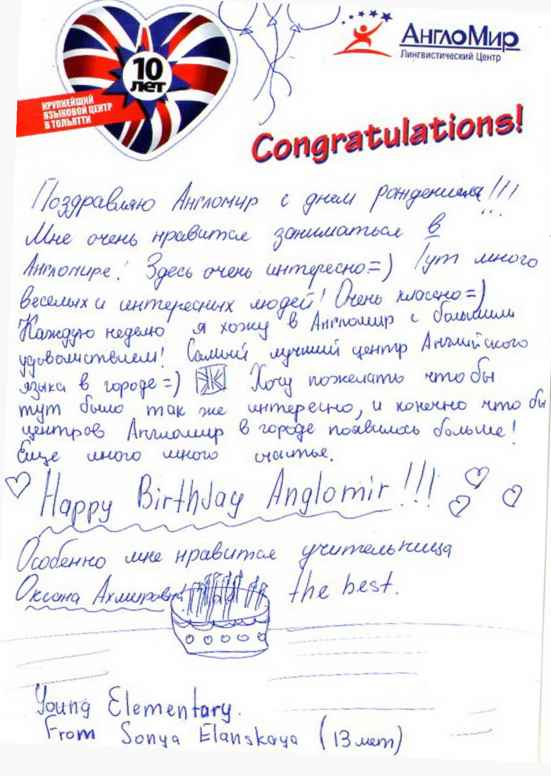 10
лет
КРУПНЕЙШИЙ
ЯЗЫКОВОЙ ЦЕНТР
В ТОЛЬЯТТИ
АнглоМир
Лингвистический Центр
Congratulations!
Поздравляю Англомир с днем рождением!!!
Мне очень нравиться заниматься в
Англомире! Здесь очень интересно=) Тут много
веселых и интересных людей! Очень классно=)
Каждую неделю я хожу в Англомир с большим
удовольствием! Самый лучший центр Английского
языка в городе=) Хочу пожелать что бы
тут было так же интересно, и конечно что бы
центров Англомир в городе появилось больше!
Еще много много счастье.
Happy Birthday Anglomir!!!
Особенно мне нравится учительница
Оксана the best.
Young Elementary.
From Sonya Elanskaya (13 лет)